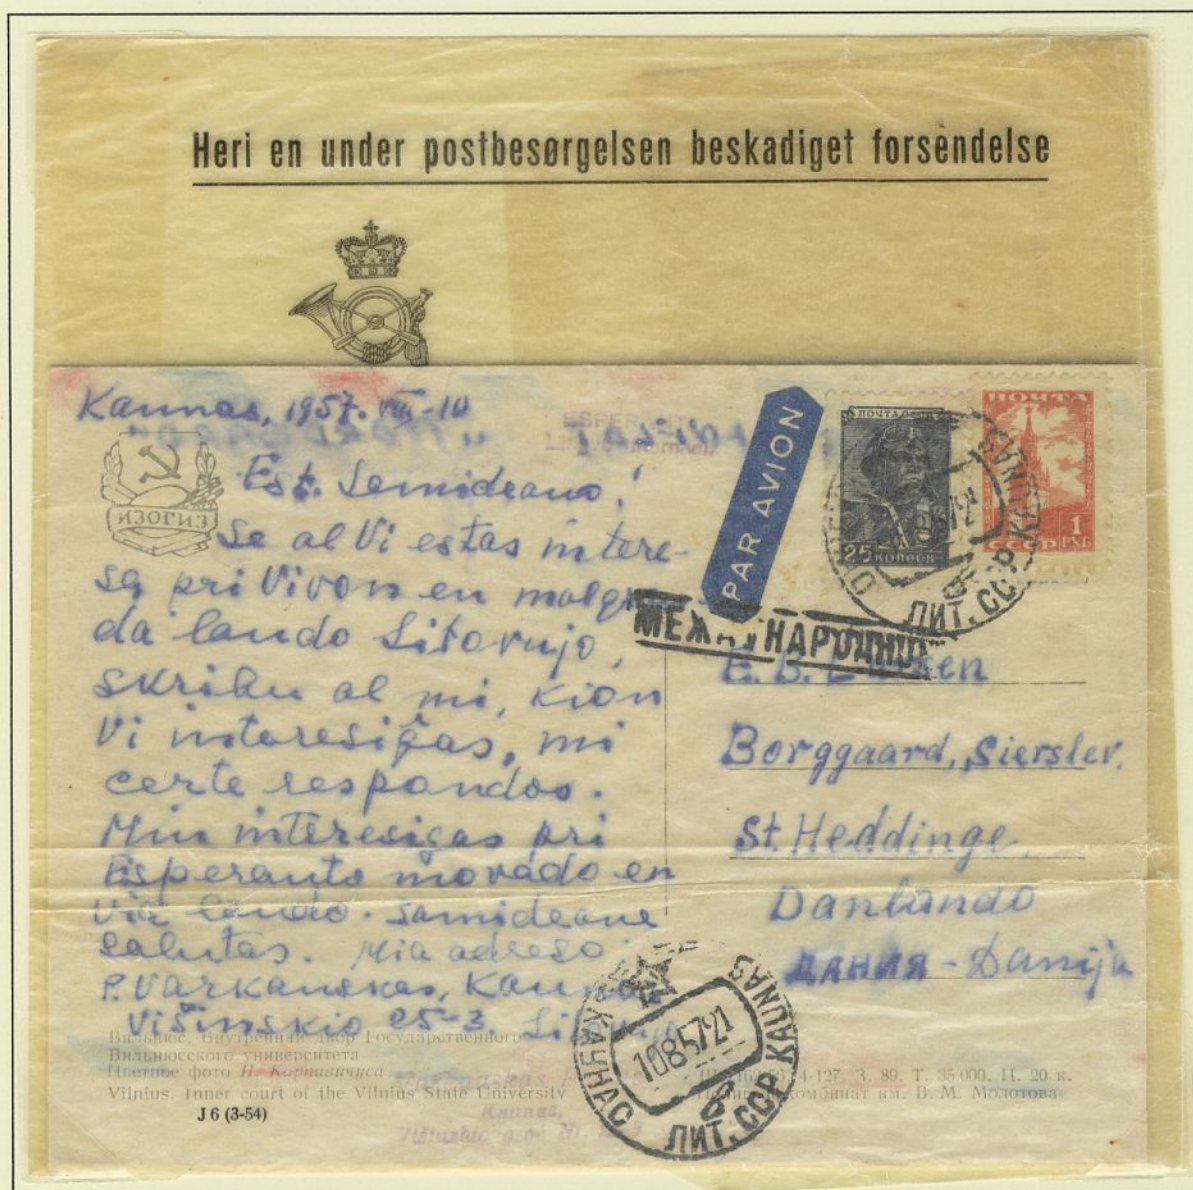 Heri en under postbesørgelsen beskadiget forsendelse
Kaunas, 1957. VIII-10
ESPERANTO
ИЗОГИЗ
Est. Semideano!
Se al Vi estas intere-
sa pri Vivon en malgran-
da lando Litovujo,
skribu al mi, kion
Vi interesiĝas, mi
certe respondos.
Min interesigas pri
Esperanto movado en
via lando. Samideane
salutas. Mia adreso:
P. Varkauskas, Kaunas
Višinskio 25-3, Litovujo
PAR AVION
ПОЧТА СССР
25 КОПЕЕК
ПОЧТА
1 РУБ
СССР
КАУНАС ЛИТ. ССР KAUNAS
МЕЖДУНАРОДНОЕ
E. B.
Borggaard, Sierslev.
St. Heddinge.
Danlando
ДАНИЯ - Danija
Вильнюс. Внутренний двор Государственного
Вильнюсского университета
Цветное фото
Vilnius. Inner court of the Vilnius State University
З. 89. Т. 35 000. Ц. 20 к.
им. В. М. Молотова
Kaunas,
J 6 (3-54)
КАУНАС ЛИТ. ССР KAUNAS
10 8 57 21